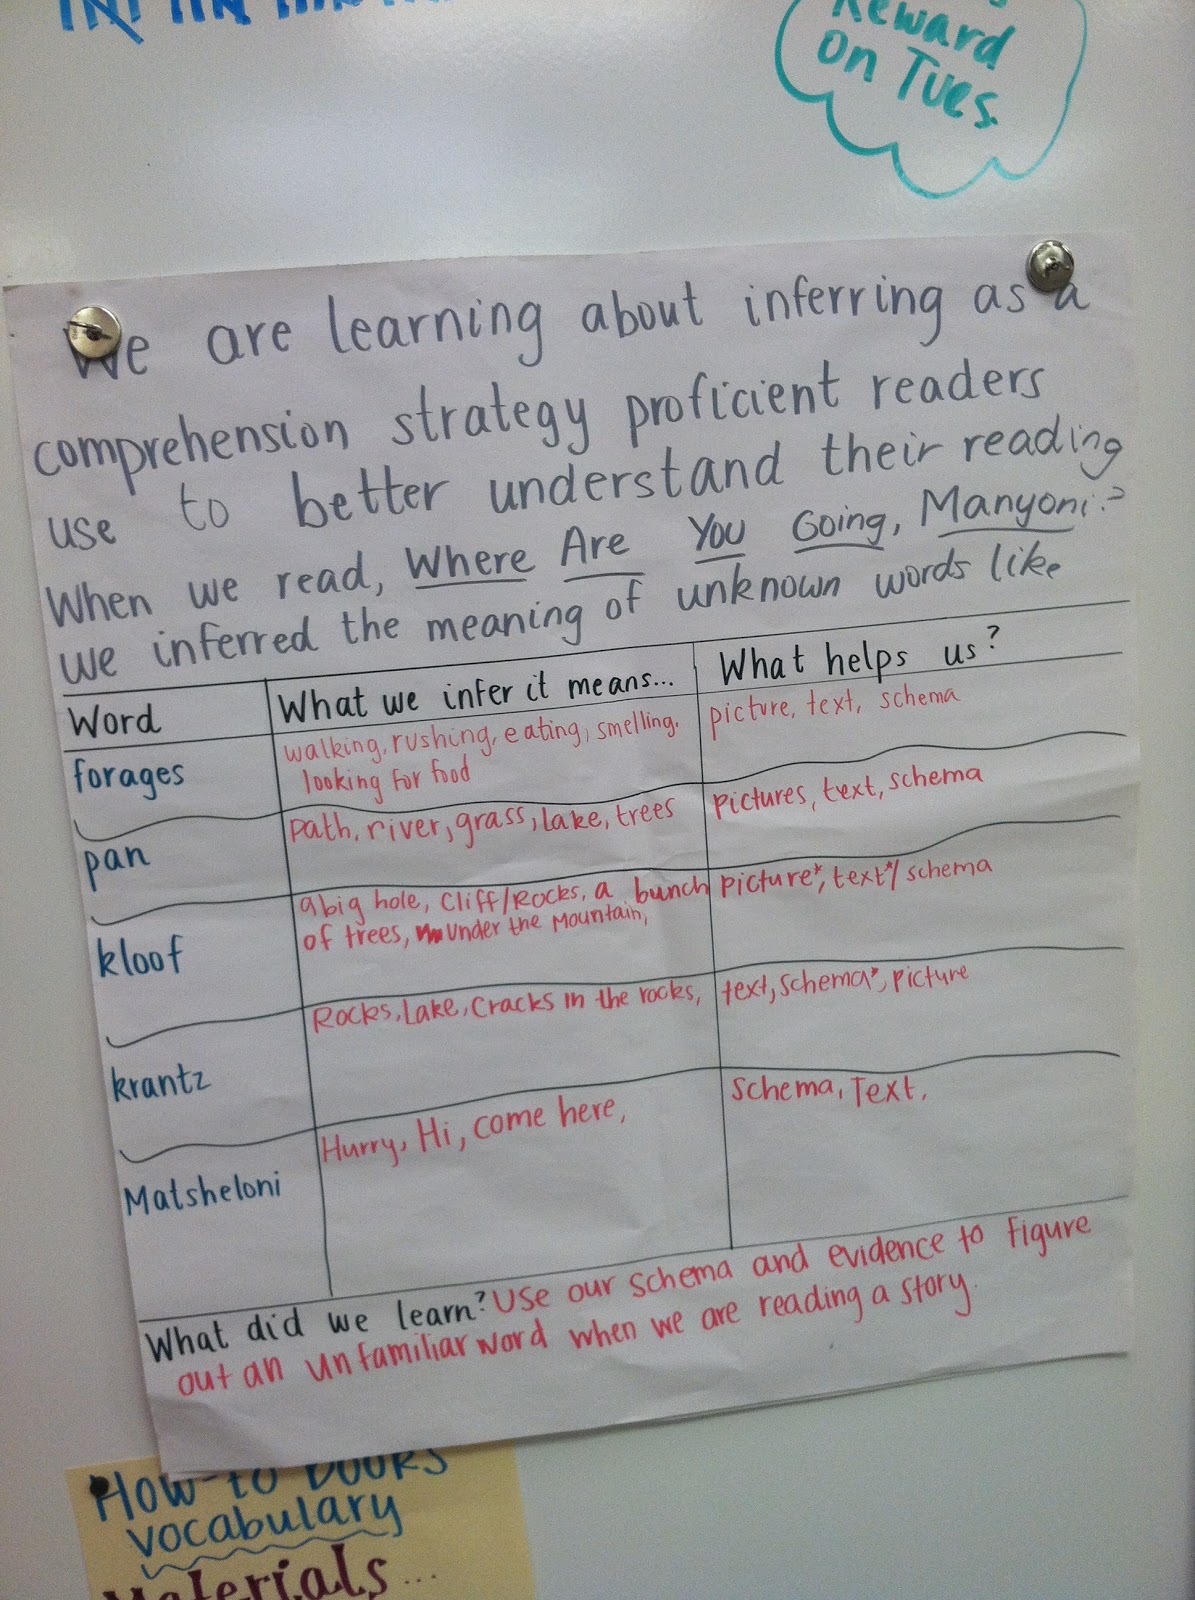 Reward
on Tues.
We are learning about inferring as a
comprehension strategy proficient readers
use to better understand their reading
When we read, Where Are You Going, Manyoni?
we inferred the meaning of unknown words like
Word What we infer it means... What helps us?
forages walking, rushing, eating, smelling. picture, text, schema
looking for food
pan path, river, grass, lake, trees pictures, text, schema
kloof a big hole, Cliff/Rocks, a bunch picture*, text*/ schema
of trees, under the Mountain,
krantz Rocks, Lake, Cracks in the rocks, text, schema*, picture
Matsheloni Hurry, Hi, come here, Schema, Text,
What did we learn? Use our schema and evidence to figure
out an unfamiliar word when we are reading a story.
How-to Books
vocabulary
Materials...